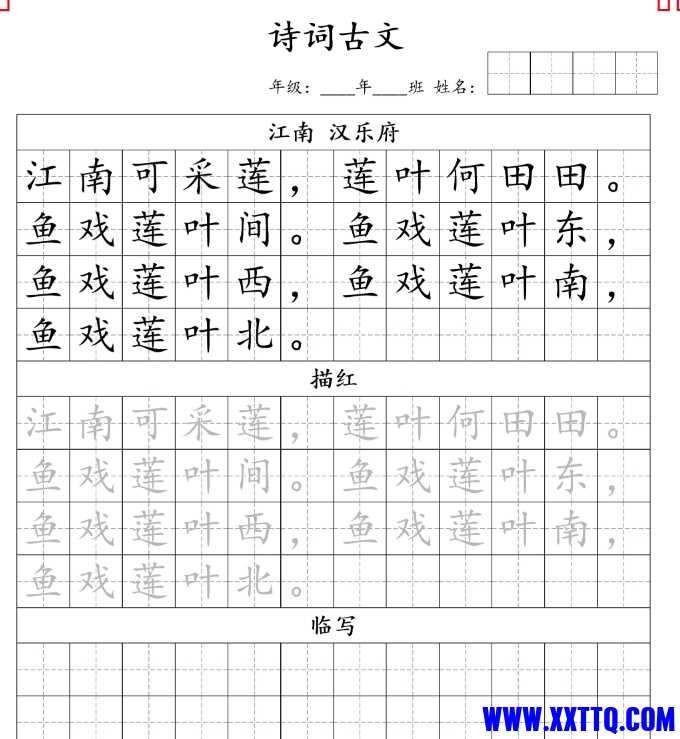 诗词古文
年级：____年____班 姓名：
江南 汉乐府
江南可采莲，莲叶何田田。
鱼戏莲叶间。鱼戏莲叶东，
鱼戏莲叶西，鱼戏莲叶南，
鱼戏莲叶北。
描红
江南可采莲，莲叶何田田。
鱼戏莲叶间。鱼戏莲叶东，
鱼戏莲叶西，鱼戏莲叶南，
鱼戏莲叶北。
临写
WWW.XXTTQ.COM